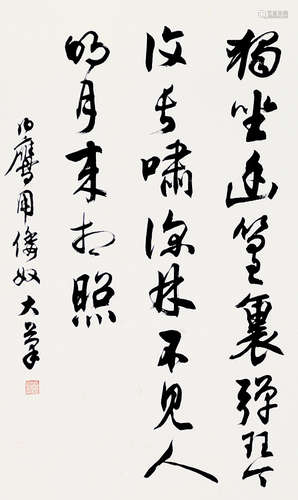 獨坐幽篁裏彈琴
復長嘯深林不見人
明月来相照
伯鷹用倭奴大筆